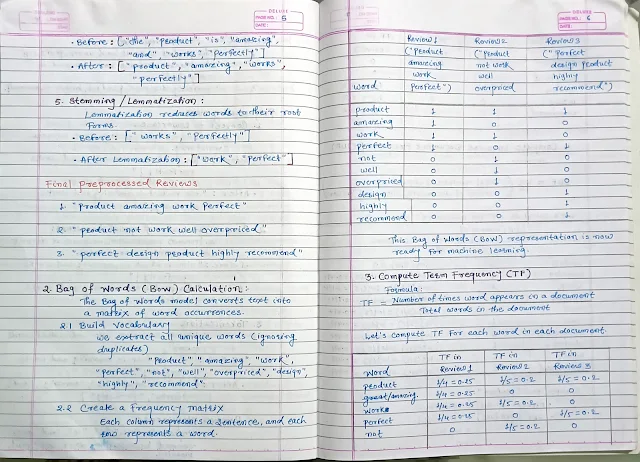 DELUXE
PAGE NO.: 5
DATE:
• Before: ["the", "product", "is", "amazing",
"and", "works", "perfectly"]
• After: ["product", "amazing", "works",
"perfectly"]
5. Stemming / Lemmatization:
Lemmatization reduces words to their root
forms.
• Before: ["works", "perfectly"]
• After Lemmatization: ["work", "perfect"]
Final Preprocessed Reviews
1. "product amazing work perfect"
2. "product not work well overpriced"
3. "perfect design product highly recommend"
2. Bag of Words (BOW) Calculation:
The Bag of Words model converts text into
a matrix of word occurrences.
2.1 Build Vocabulary
we extract all unique words (ignoring
duplicates)
"Product", "amazing", "work",
"perfect", "not", "well", "overpriced", "design",
"highly", "recommend".
2.2 Create a frequency matrix
Each column represents a sentence, and each
row represents a word.
DELUXE
PAGE NO.: 6
DATE:
Review 1 Review 2 Review 3
("Product ("product ("Perfect
amazing not work design product
work well highly
word perfect") overpriced recommend")
product 1 1 1
amazing 1 0 0
work 1 1 0
perfect 1 0 1
not 0 1 0
well 0 1 0
overpriced 0 1 0
design 0 0 1
highly 0 0 1
recommend 0 0 1
This Bag of Words (BOW) representation is now
ready for machine learning.
3. Compute Term Frequency (TF)
Formula:
TF = Number of times word appears in a document
Total words in the document
Let's compute TF for each word in each document
TF in TF in TF in
Word Review 1 Review 2 Review 3
product 1/4 = 0.25 1/5 = 0.2 1/5 = 0.2
great/amazing. 1/4 = 0.25 0 0
works 1/4 = 0.25 1/5 = 0.2 0
perfect 1/4 = 0.25 0 1/5 = 0.2
not 0 1/5 = 0.2 0